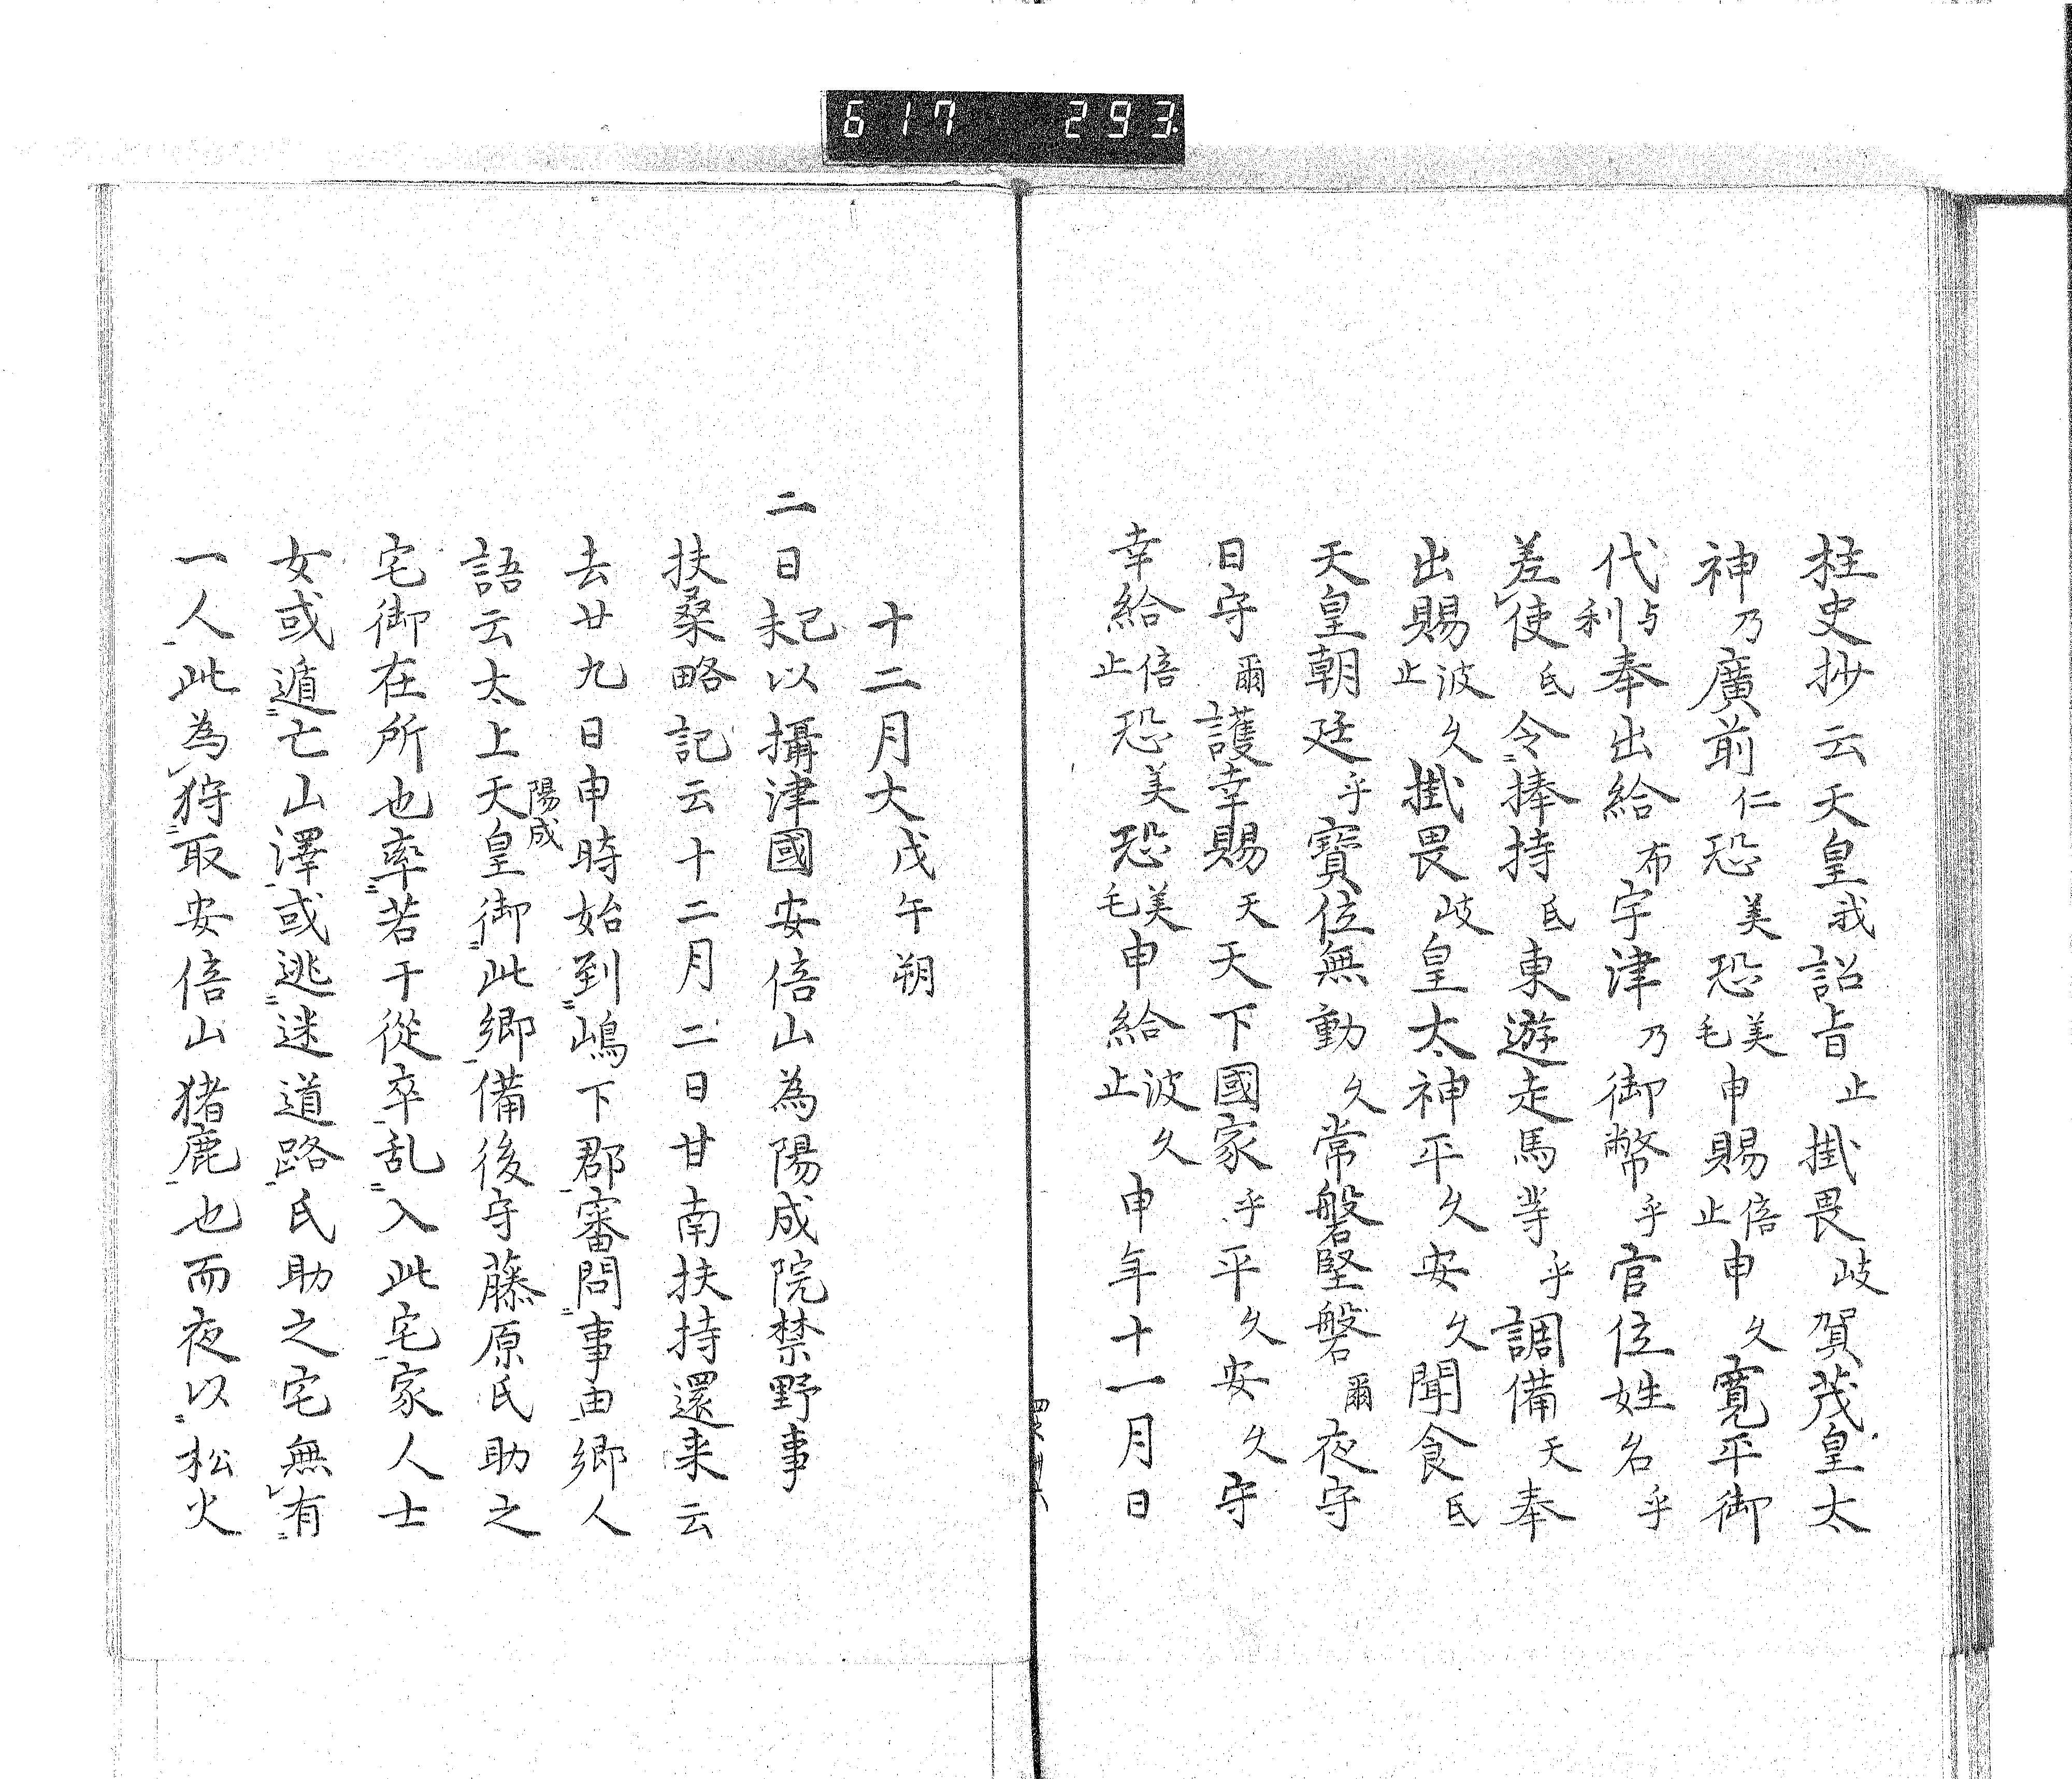 617 293
柱史抄云天皇我詔旨止掛畏岐賀茂皇太
神乃廣前仁恐美恐美毛申賜倍止申久寛平御
代与利奉出給布宇津乃御幣乎官位姓名乎
差使氐令捧持氐東遊走馬等乎調備天奉
出賜波久止掛畏岐皇太神平久安久聞食氐
天皇朝廷乎寶位無動久常磐堅磐爾夜守
日守爾護幸賜天天下國家乎平久安久守
幸給倍止恐美恐美毛申給波久止申年十一月日
十二月大戊午朔
二日己未以攝津國安倍山為陽成院禁野事
扶桑略記云十二月二日甘南扶持還来云
去廿九日申時始到嶋下郡審問事由郷人
語云太上天皇陽成御此郷備後守藤原氏助之
宅御在所也率若干從卒乱入此宅家人士
女或遁亡山澤或逃迷道路氏助之宅無有
一人此為狩取安倍山猪鹿也而夜以松火